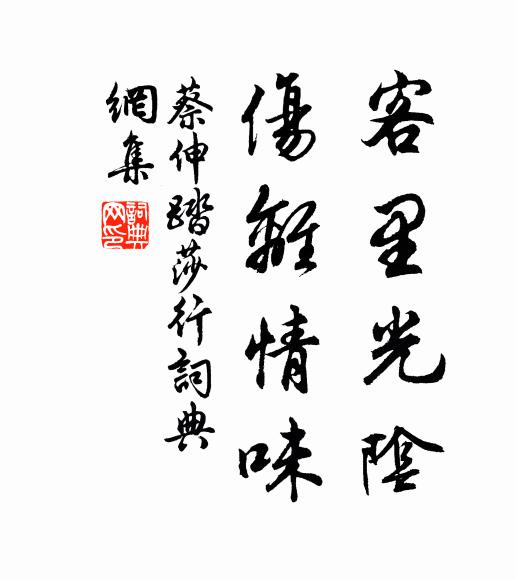 客里光陰
傷離情味
蔡伸踏莎行詞典
網集
詞典
网印